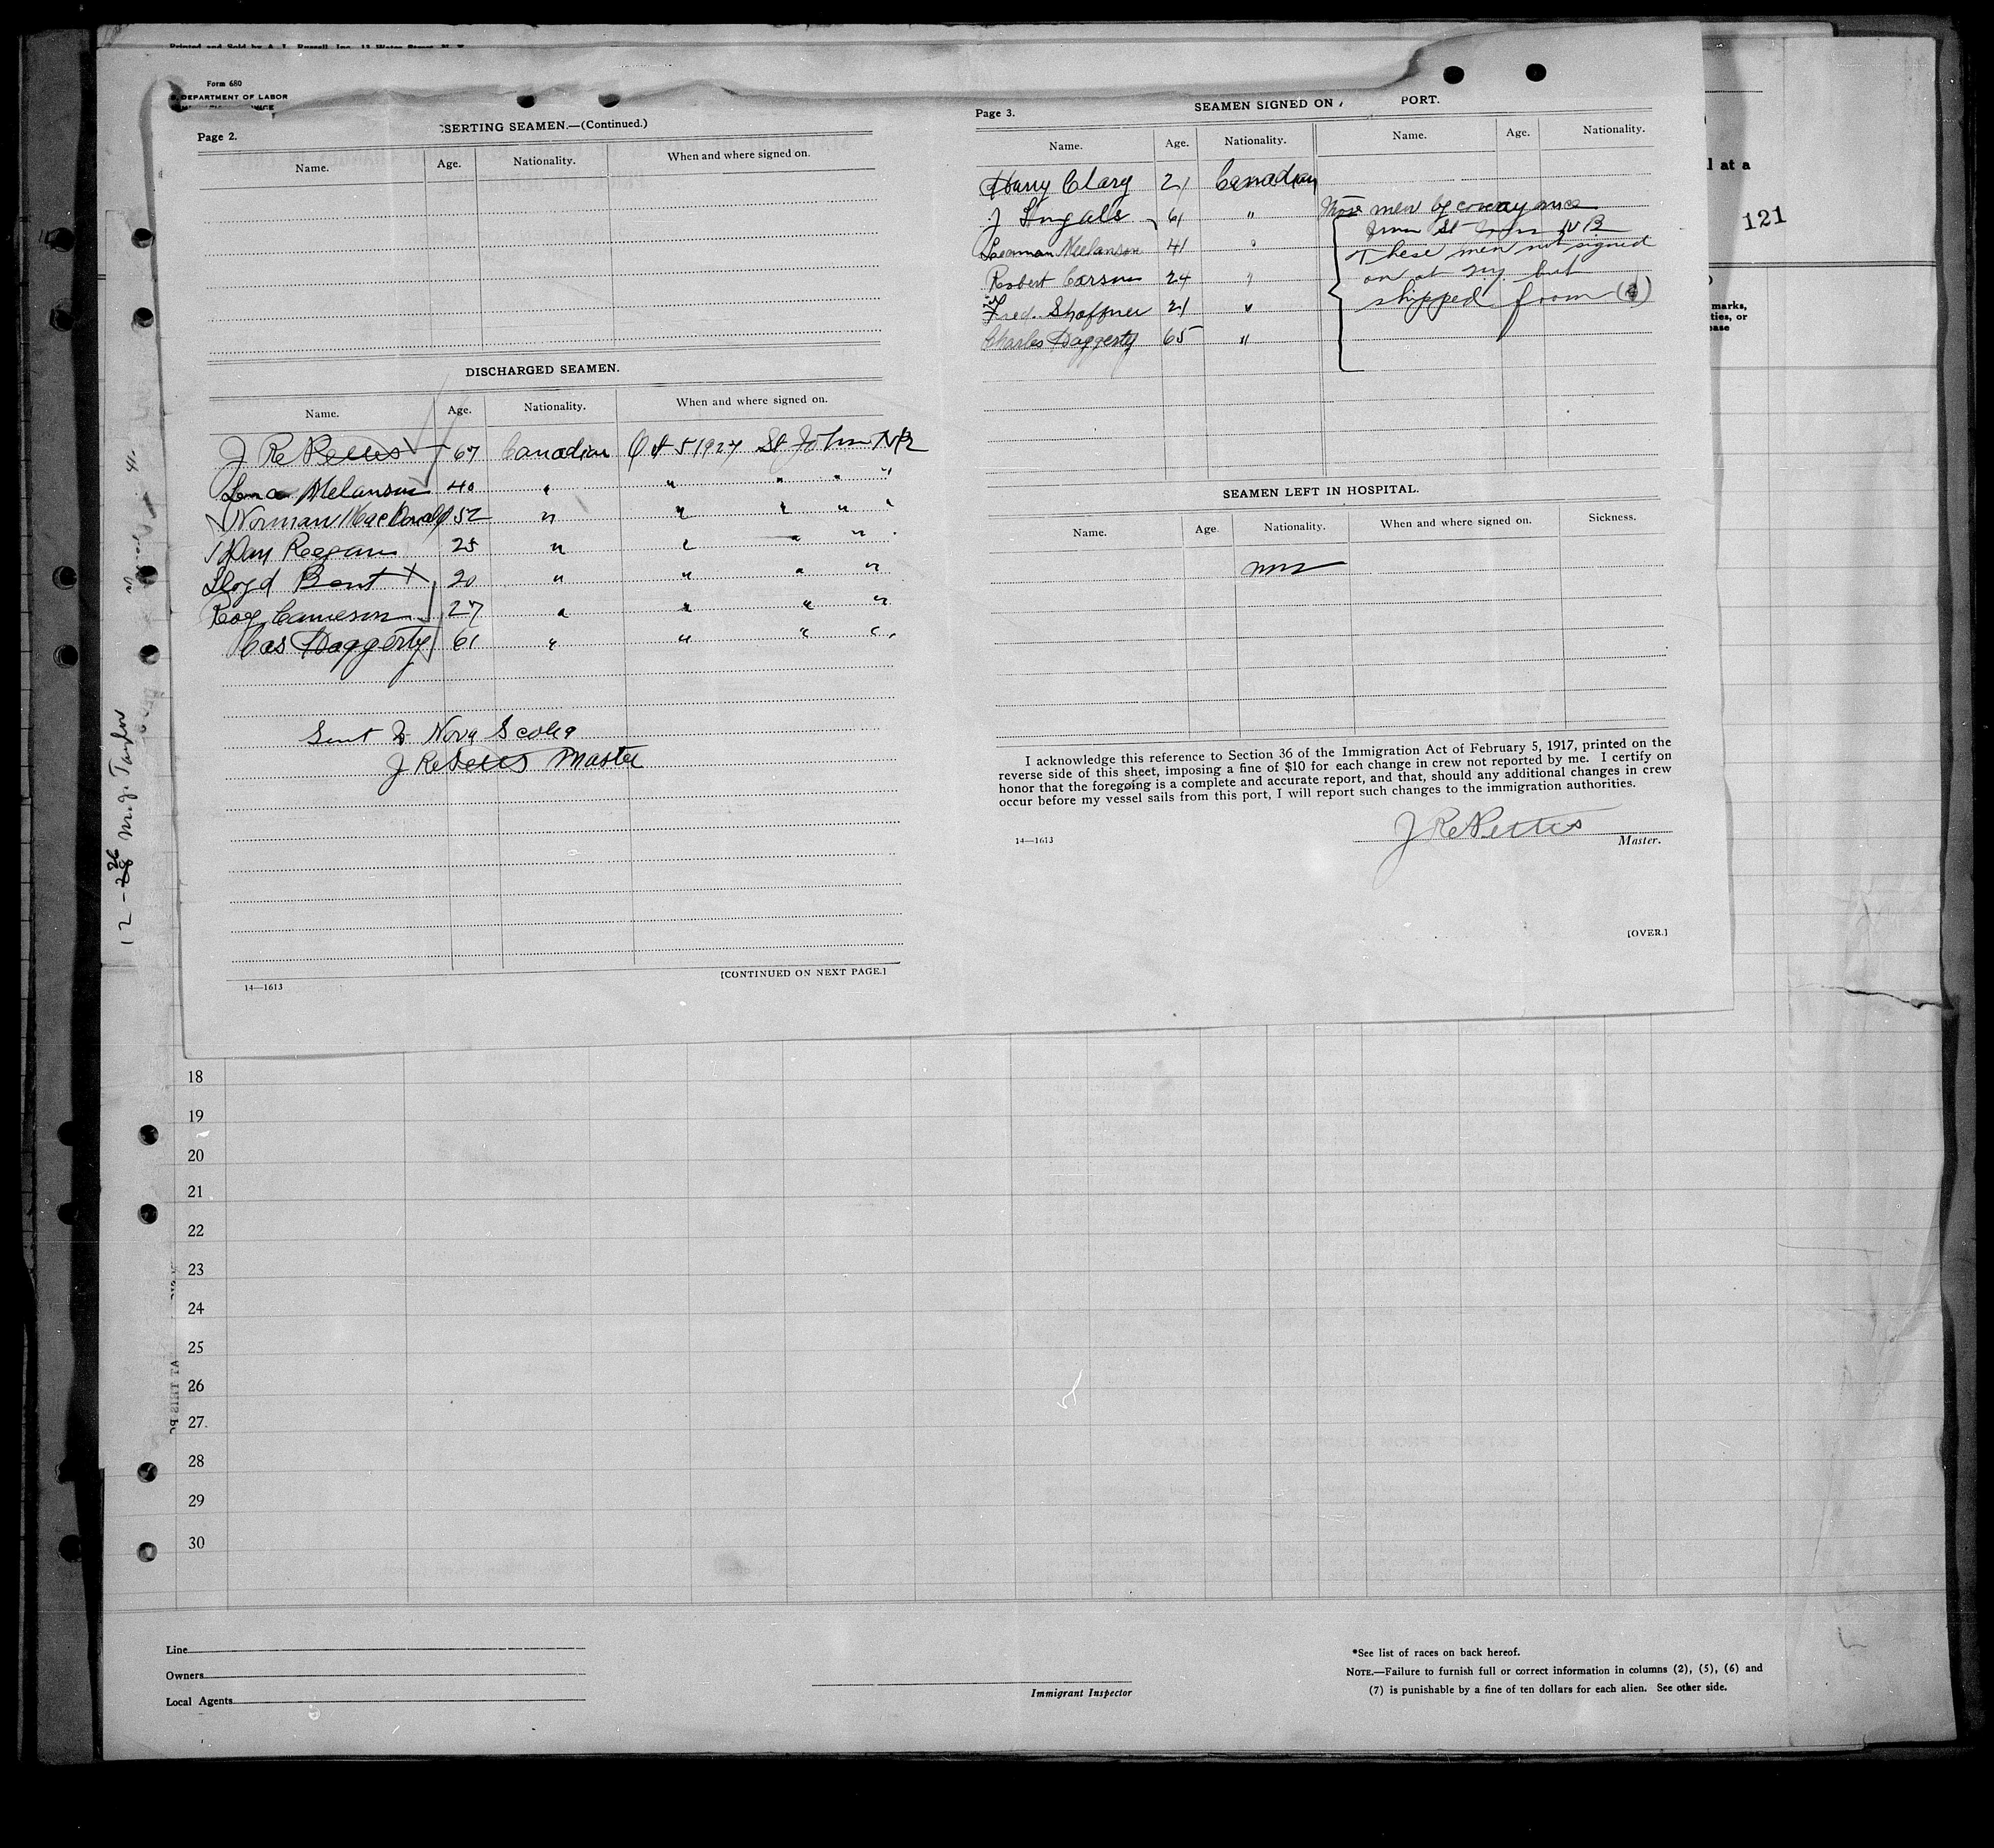 Printed and Sold by A. L. Russell, Inc. 13 Water Street, N. Y.
Form 680
DEPARTMENT OF LABOR
Page 2.
SERTING SEAMEN.—(Continued.)
Name. Age. Nationality. When and where signed on.
DISCHARGED SEAMEN.
Name. Age. Nationality. When and where signed on.
J Re Pettis 67 Canadian Oct 5 1927 St John NB
Melanson 40 " " " " "
Norman MacDonald 52 " " " " "
Dan Reegan 25 " " " "
Lloyd Bent X 20 " " " "
Roy Cameron 27 " " " "
Cas Daggerty 61 " " " "
Sent to Nova Scotia
J Re Pettis Master
14—1613
[CONTINUED ON NEXT PAGE.]
Page 3.
SEAMEN SIGNED ON PORT.
Name. Age. Nationality. Name. Age. Nationality.
Harry Clarg 21 Canadian
J 61 "
Melanson 41 "
Robert Carson 24 "
Fred. Shaffner 21 "
Charles Daggerty 65 "
men
St John N B
These men not signed
on at but
shipped from
SEAMEN LEFT IN HOSPITAL.
Name. Age. Nationality. When and where signed on. Sickness.
I acknowledge this reference to Section 36 of the Immigration Act of February 5, 1917, printed on the
reverse side of this sheet, imposing a fine of $10 for each change in crew not reported by me. I certify on
honor that the foregoing is a complete and accurate report, and that, should any additional changes in crew
occur before my vessel sails from this port, I will report such changes to the immigration authorities.
J Re Pettis
14—1613
Master.
[OVER.]
l at a
121
marks,
ties, or
ease
12-26 M. J. Taylor
18
19
20
21
22
23
24
25
26
27.
28
29
30
Line
Owners
Local Agents
Immigrant Inspector
*See list of races on back hereof.
NOTE.—Failure to furnish full or correct information in columns (2), (5), (6) and
(7) is punishable by a fine of ten dollars for each alien. See other side.